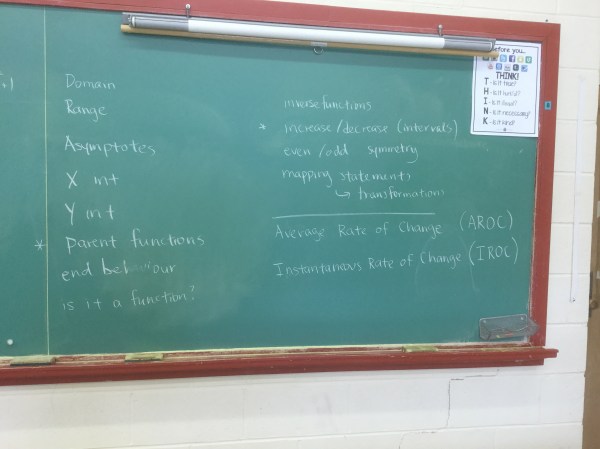 Domain
Range
Asymptotes
X int
Y int
* Parent functions
end behaviour
is it a function?
inverse functions
* increase/decrease (intervals)
even/odd symmetry
mapping statements
↳ transformations
Average Rate of Change (AROC)
Instantaneous Rate of Change (IROC)
efore you..
THINK!
T - is it true?
H - is it helpful?
I - is it
N - is it necessary?
K - is it kind?